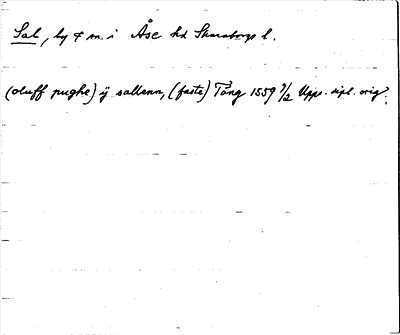 Sal, by f m. i Åse hd Skaraborgs l.
(oluff pughe) ÿ sallenn, (faste) Tång 1559 7/2 Upps. dipl. orig.